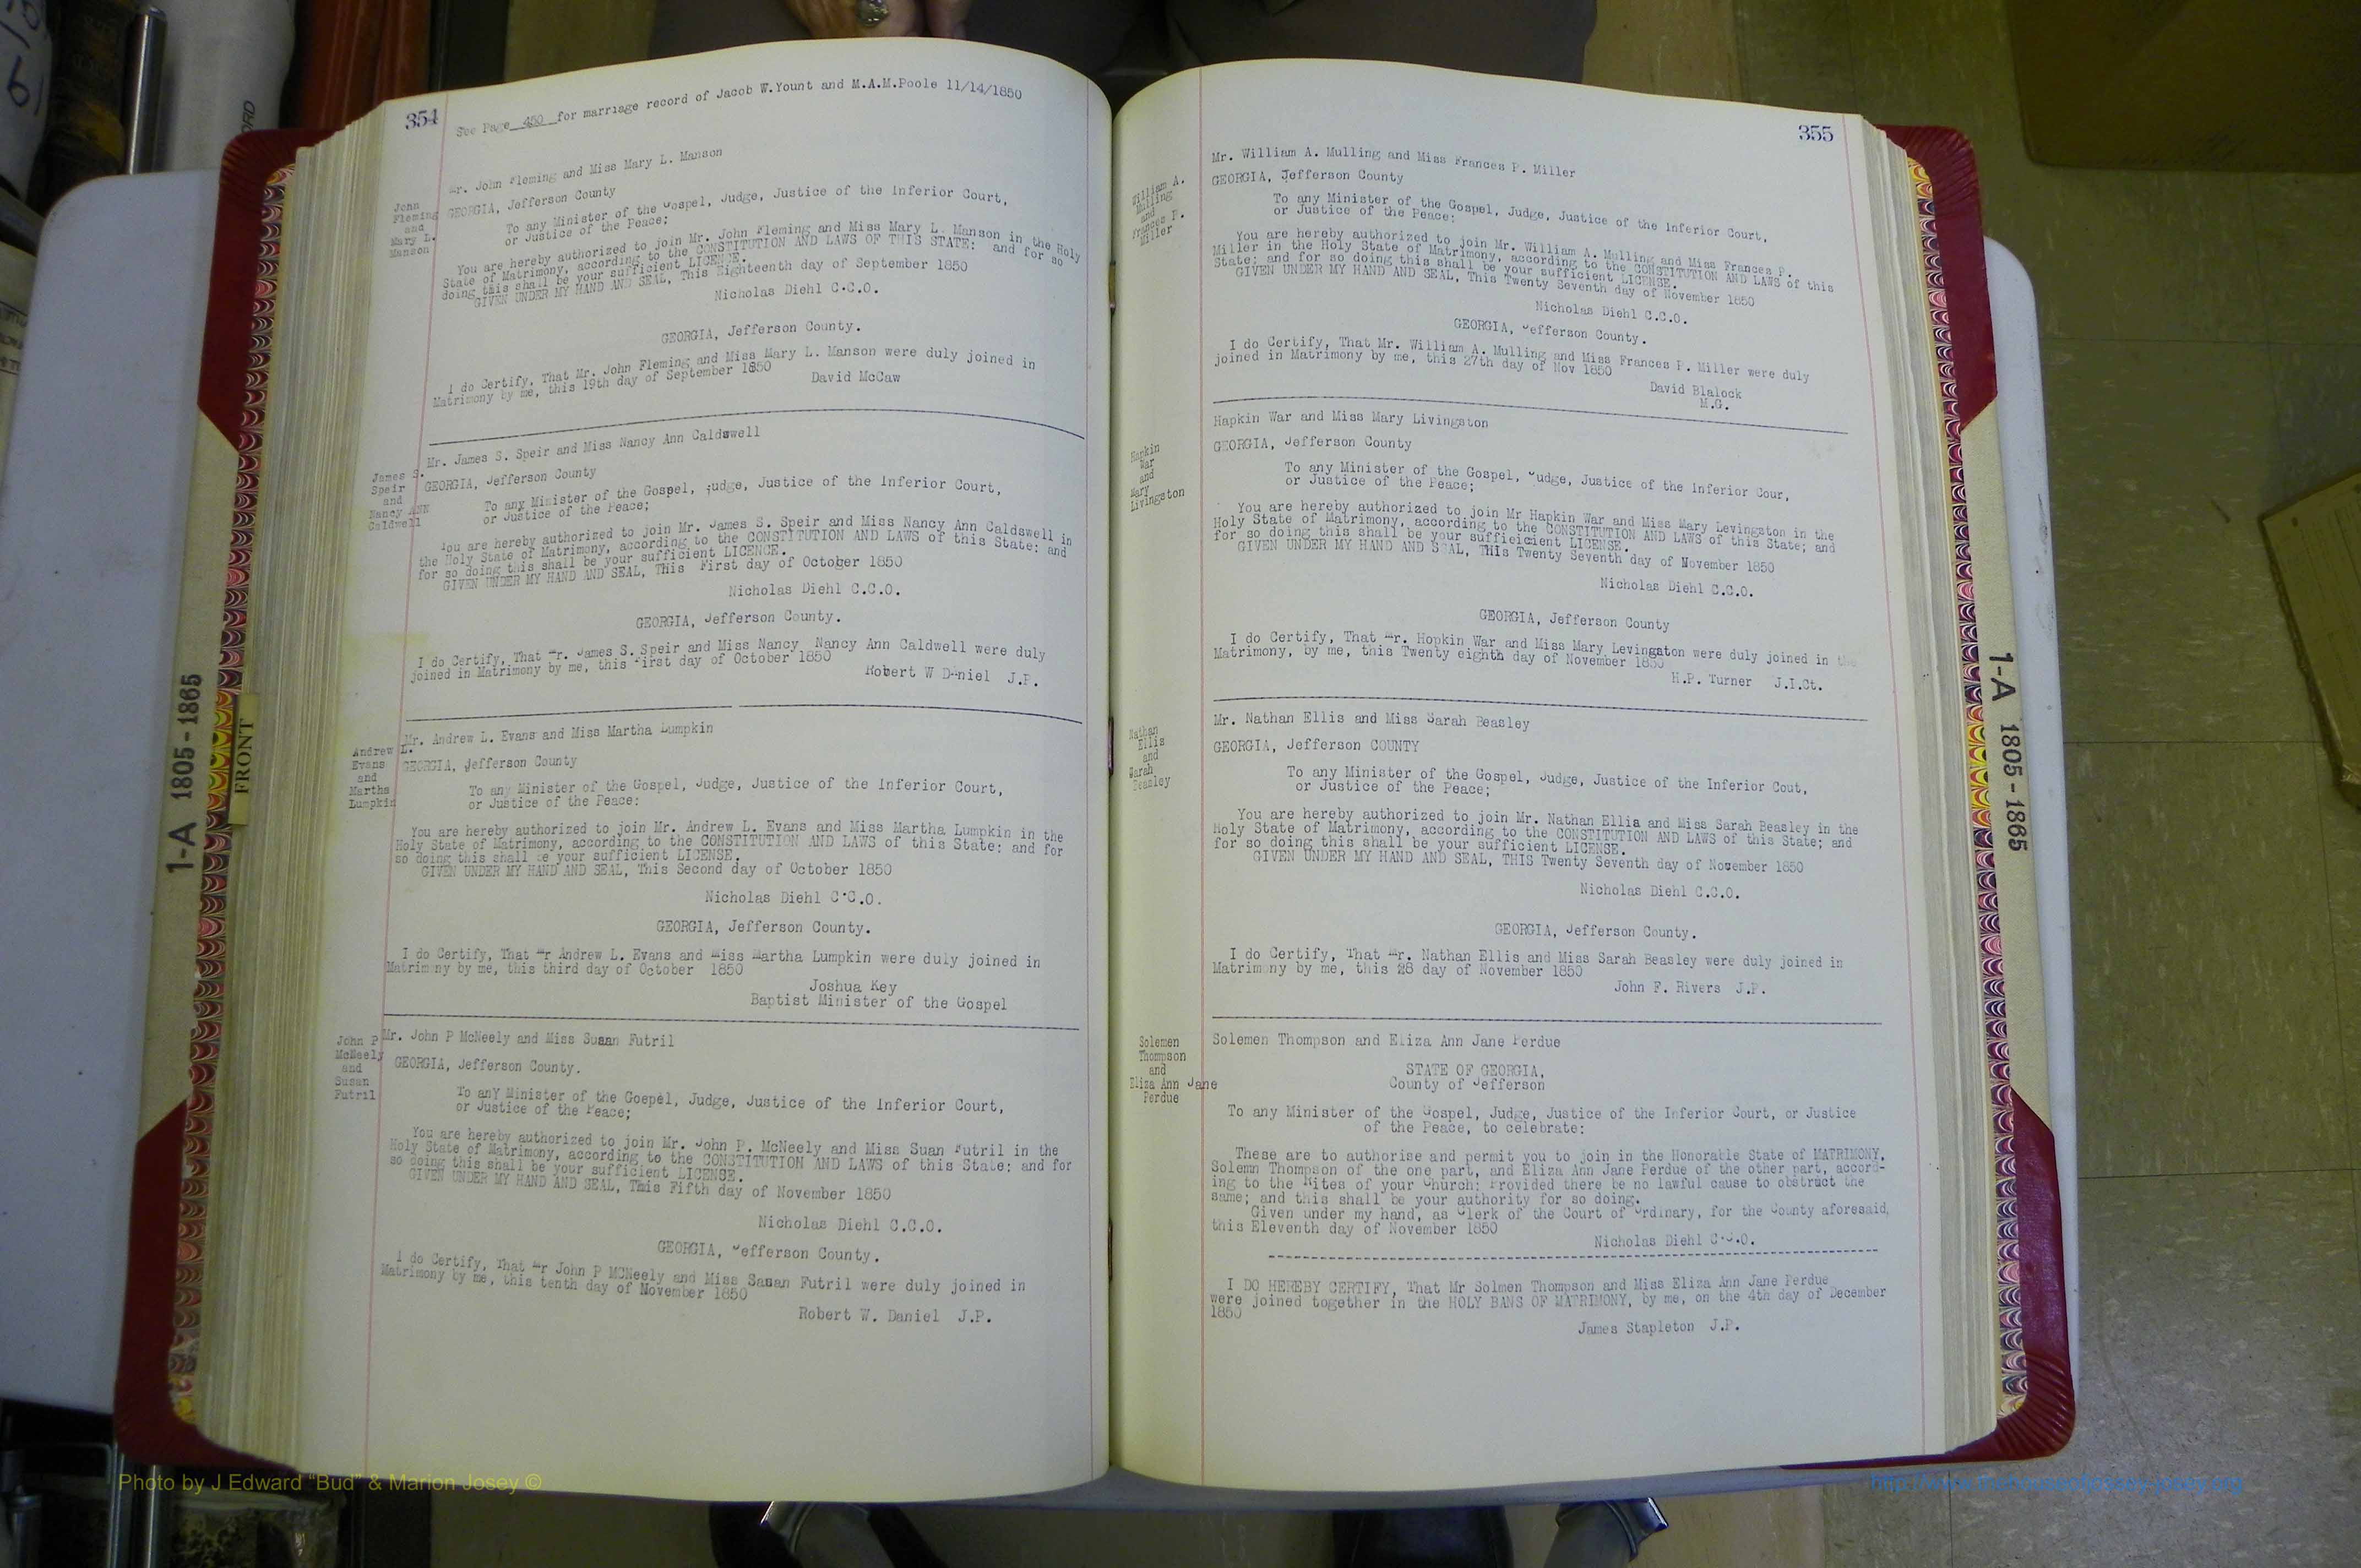 354
See Page 450 for marriage record of Jacob W.Yount and M.A.M.Poole 11/14/1850
Mr. John Fleming and Miss Mary L. Manson
John
Fleming
and
Mary L.
Manson
GEORGIA, Jefferson County
To any Minister of the Gospel, Judge, Justice of the Inferior Court,
or Justice of the Peace;
You are hereby authorized to join Mr. John Fleming and Miss Mary L. Manson in the Holy
State of Matrimony, according to the CONSTITUTION AND LAWS OF THIS STATE: and for so
doing this shall be your sufficient LICENSE.
GIVEN UNDER MY HAND AND SEAL, This Eighteenth day of September 1850
Nicholas Diehl C.C.O.
GEORGIA, Jefferson County.
I do Certify, That Mr. John Fleming and Miss Mary L. Manson were duly joined in
Matrimony by me, this 19th day of September 1850
David McCaw
Mr. James S. Speir and Miss Nancy Ann Caldswell
James S.
Speir
and
Nancy ANN
Caldwell
GEORGIA, Jefferson County
To any Minister of the Gospel, Judge, Justice of the Inferior Court,
or Justice of the Peace;
You are hereby authorized to join Mr. James S. Speir and Miss Nancy Ann Caldswell in
the Holy State of Matrimony, according to the CONSTITUTION AND LAWS of this State; and
for so doing this shall be your sufficient LICENCE.
GIVEN UNDER MY HAND AND SEAL, This First day of October 1850
Nicholas Diehl C.C.O.
GEORGIA, Jefferson County.
I do Certify, That Mr. James S. Speir and Miss Nancy Nancy Ann Caldwell were duly
joined in Matrimony by me, this First day of October 1850
Robert W Daniel J.P.
Mr. Andrew L. Evans and Miss Martha Lumpkin
Andrew L.
Evans
and
Martha
Lumpkin
GEORGIA, Jefferson County
To any Minister of the Gospel, Judge, Justice of the Inferior Court,
or Justice of the Peace:
You are hereby authorized to join Mr. Andrew L. Evans and Miss Martha Lumpkin in the
Holy State of Matrimony, according to the CONSTITUTION AND LAWS of this State: and for
so doing this shall be your sufficient LICENSE.
GIVEN UNDER MY HAND AND SEAL, This Second day of October 1850
Nicholas Diehl C.C.O.
GEORGIA, Jefferson County.
I do Certify, That Mr Andrew L. Evans and Miss Martha Lumpkin were duly joined in
Matrimony by me, this third day of October 1850
Joshua Key
Baptist Minister of the Gospel
Mr. John P McNeely and Miss Susan Futril
John P
McNeely
and
Susan
Futril
GEORGIA, Jefferson County.
To anY Minister of the Goepel, Judge, Justice of the Inferior Court,
or Justice of the Peace;
You are hereby authorized to join Mr. John P. McNeely and Miss Suan Futril in the
Holy State of Matrimony, according to the CONSTITUTION AND LAWS of this State; and for
so doing this shall be your sufficient LICENSE.
GIVEN UNDER MY HAND AND SEAL, This Fifth day of November 1850
Nicholas Diehl C.C.O.
GEORGIA, Jefferson County.
I do Certify, That Mr John P MCNeely and Miss Susan Futril were duly joined in
Matrimony by me, this tenth day of November 1850
Robert W. Daniel J.P.
355
Mr. William A. Mulling and Miss Frances P. Miller
William A.
Mulling
and
Frances P.
Miller
GEORGIA, Jefferson County
To any Minister of the Gospel, Judge, Justice of the Inferior Court,
or Justice of the Peace;
You are hereby authorized to join Mr. William A. Mulling and Miss Frances P.
Miller in the Holy State of Matrimony, according to the CONSTITUTION AND LAWS of this
State; and for so doing this shall be your sufficient LICENSE.
GIVEN UNDER MY HAND AND SEAL, This Twenty Seventh day of November 1850
Nicholas Diehl C.C.O.
GEORGIA, Jefferson County.
I do Certify, That Mr. William A. Mulling and Miss Frances P. Miller were duly
joined in Matrimony by me, this 27th day of Nov 1850
David Blalock
M.G.
Hapkin War and Miss Mary Livingston
Hapkin
War
and
Mary
Livingston
GEORGIA, Jefferson County
To any Minister of the Gospel, Judge, Justice of the Inferior Cour,
or Justice of the Peace;
You are hereby authorized to join Mr Hapkin War and Miss Mary Levingston in the
Holy State of Matrimony, according to the CONSTITUTION AND LAWS of this State; and
for so doing this shall be your suffieicient LICENSE.
GIVEN UNDER MY HAND AND SEAL, THis Twenty Seventh day of November 1850
Nicholas Diehl C.C.O.
GEORGIA, Jefferson County
I do Certify, That Mr. Hopkin War and Miss Mary Levingston were duly joined in the
Matrimony, by me, this Twenty eighth day of November 1850
H.P. Turner J.I.Ct.
Mr. Nathan Ellis and Miss Sarah Beasley
Nathan
Ellis
and
Sarah
Beasley
GEORGIA, Jefferson COUNTY
To any Minister of the Gospel, Judge, Justice of the Inferior Cout,
or Justice of the Peace;
You are hereby authorized to join Mr. Nathan Ellia and Miss Sarah Beasley in the
Holy State of Matrimony, according to the CONSTITUTION AND LAWS of this State; and
for so doing this shall be your sufficient LICENSE.
GIVEN UNDER MY HAND AND SEAL, THIS Twenty Seventh day of November 1850
Nicholas Diehl C.C.O.
GEORGIA, Jefferson County.
I do Certify, That Mr. Nathan Ellis and Miss Sarah Beasley were duly joined in
Matrimony by me, this 28 day of November 1850
John F. Rivers J.P.
Solemen Thompson and Eliza Ann Jane Perdue
Solemen
Thompson
and
Eliza Ann Jane
Perdue
STATE OF GEORGIA,
County of Jefferson
To any Minister of the Gospel, Judge, Justice of the Inferior Court, or Justice
of the Peace, to celebrate:
These are to authorise and permit you to join in the Honorable State of MATRIMONY,
Solemn Thompson of the one part, and Eliza Ann Jane Perdue of the other part, accord-
ing to the Rites of your Church: Provided there be no lawful cause to obstruct the
same; and this shall be your authority for so doing.
Given under my hand, as Clerk of the Court of Ordinary, for the County aforesaid,
this Eleventh day of November 1850
Nicholas Diehl C.C.O.
I DO HEREBY CERTIFY, That Mr Solmen Thompson and Miss Eliza Ann Jane Perdue
were joined together in the HOLY BANS OF MATRIMONY, by me, on the 4th day of December
1850
James Stapleton J.P.
1-A 1805-1865
FRONT
1-A 1805-1865
Photo by J Edward "Bud" & Marion Josey ©